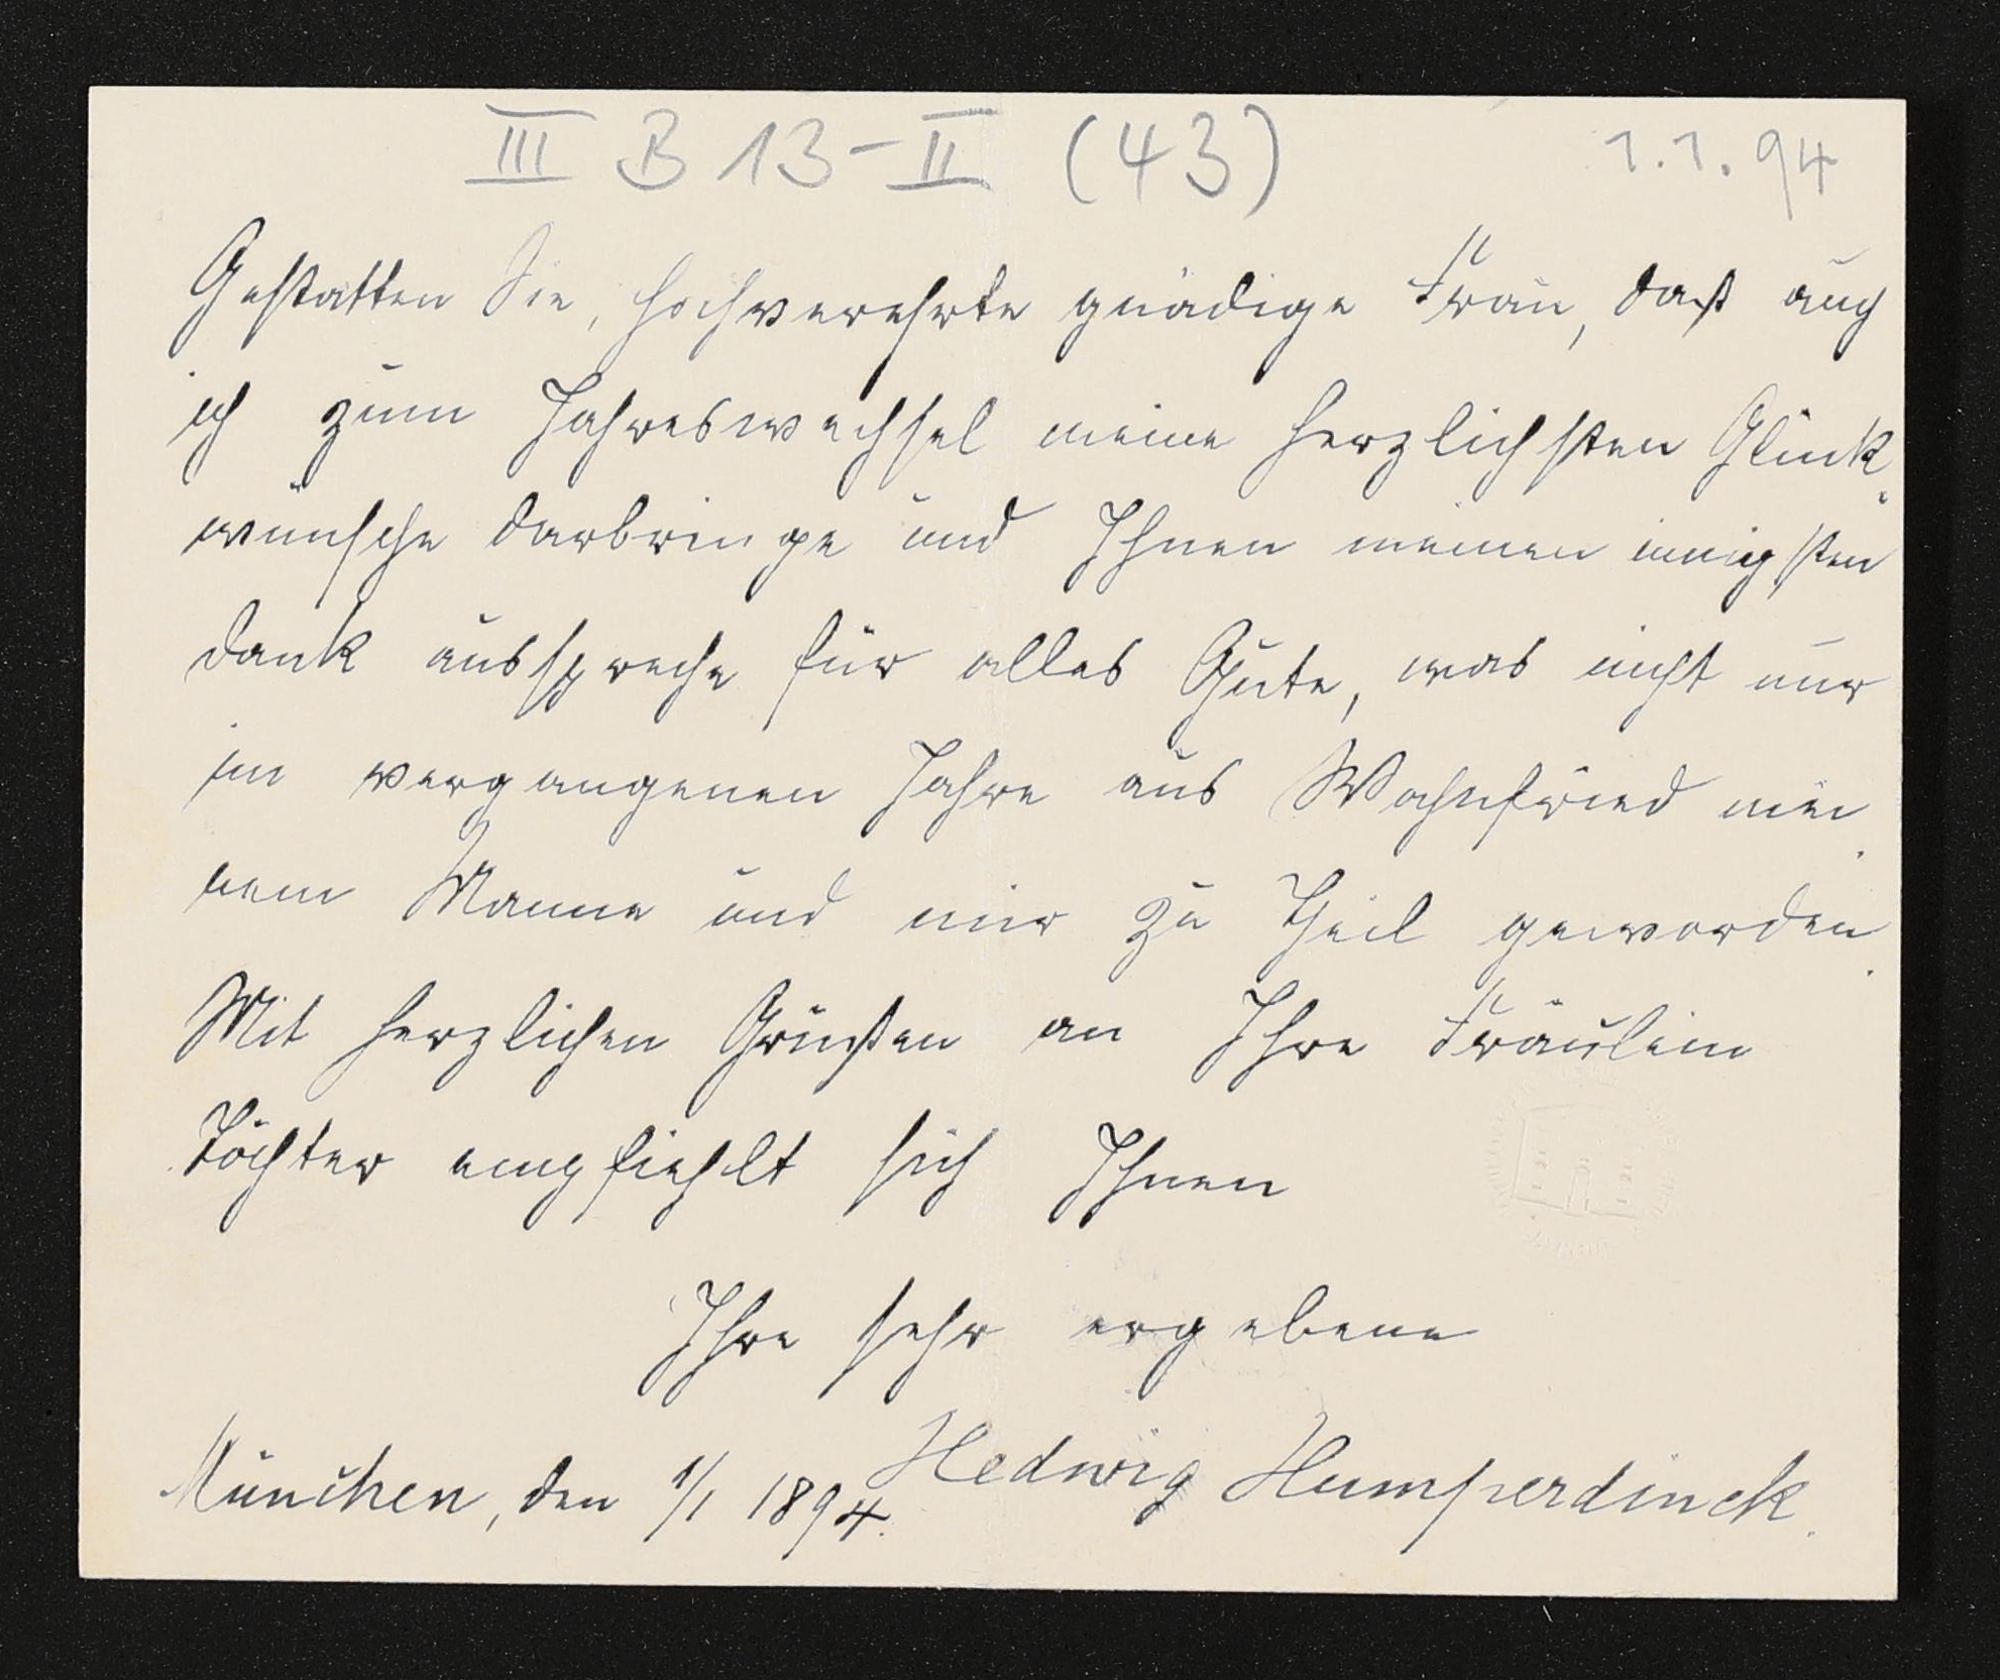 III B 13-II (43) 1.1.94
Gestatten Sie, hochverehrte gnädige Frau, daß auch
ich zum Jahreswechsel meine herzlichsten Glück-
wünsche darbringe und Ihnen meinen innigsten
Dank ausspreche für alles Gute, was nicht nur
im vergangenen Jahre aus Wahnfried mei-
nem Manne und mir zu Theil geworden.
Mit herzlichen Grüßen an Ihre Fräulein
Töchter empfiehlt sich Ihnen
Ihre sehr ergebene
Hedwig Humperdinck.
München, den 1/1 1894.